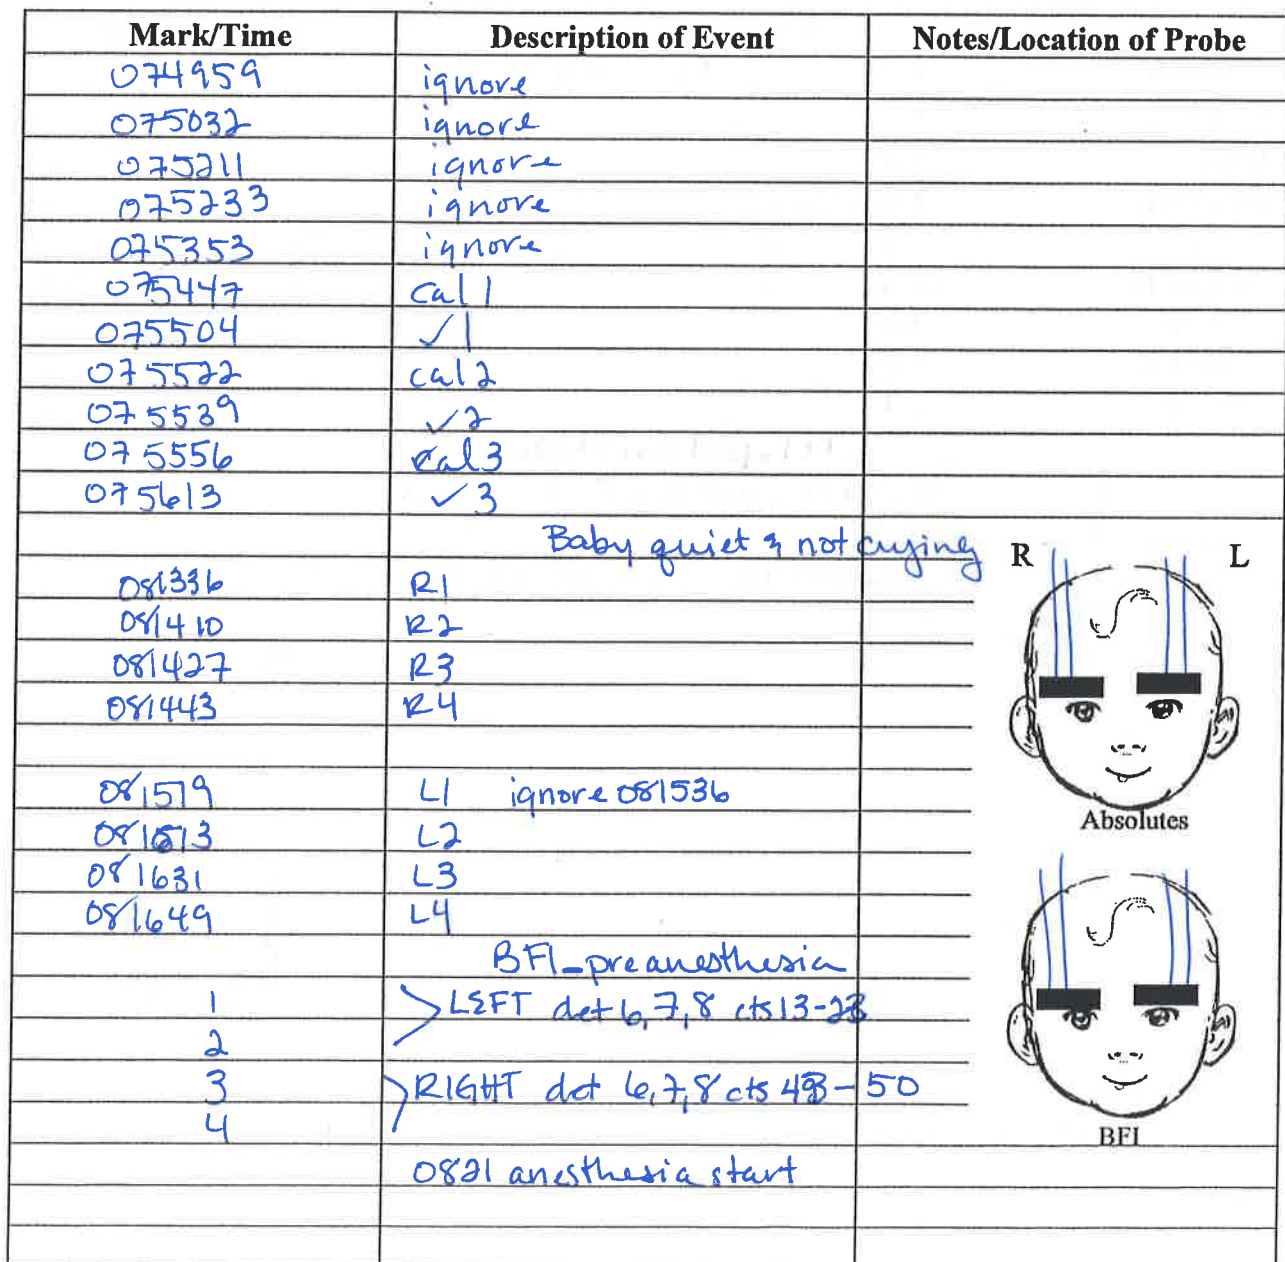 Mark/Time Description of Event Notes/Location of Probe
074959 ignore
075032 ignore
075211 ignore
075233 ignore
075353 ignore
075447 cal 1
075504 ✓1
075522 cal 2
075539 ✓2
075556 cal 3
075613 ✓3
Baby quiet & not crying
R L
081336 R1
081410 R2
081427 R3
081443 R4
081519 L1 ignore 081536
081613 L2
Absolutes
081631 L3
081649 L4
BFI_preanesthesia
1 LEFT det 6,7,8 cts 13-23
2
3 RIGHT det 6,7,8 cts 48-50
4
BFI
0821 anesthesia start